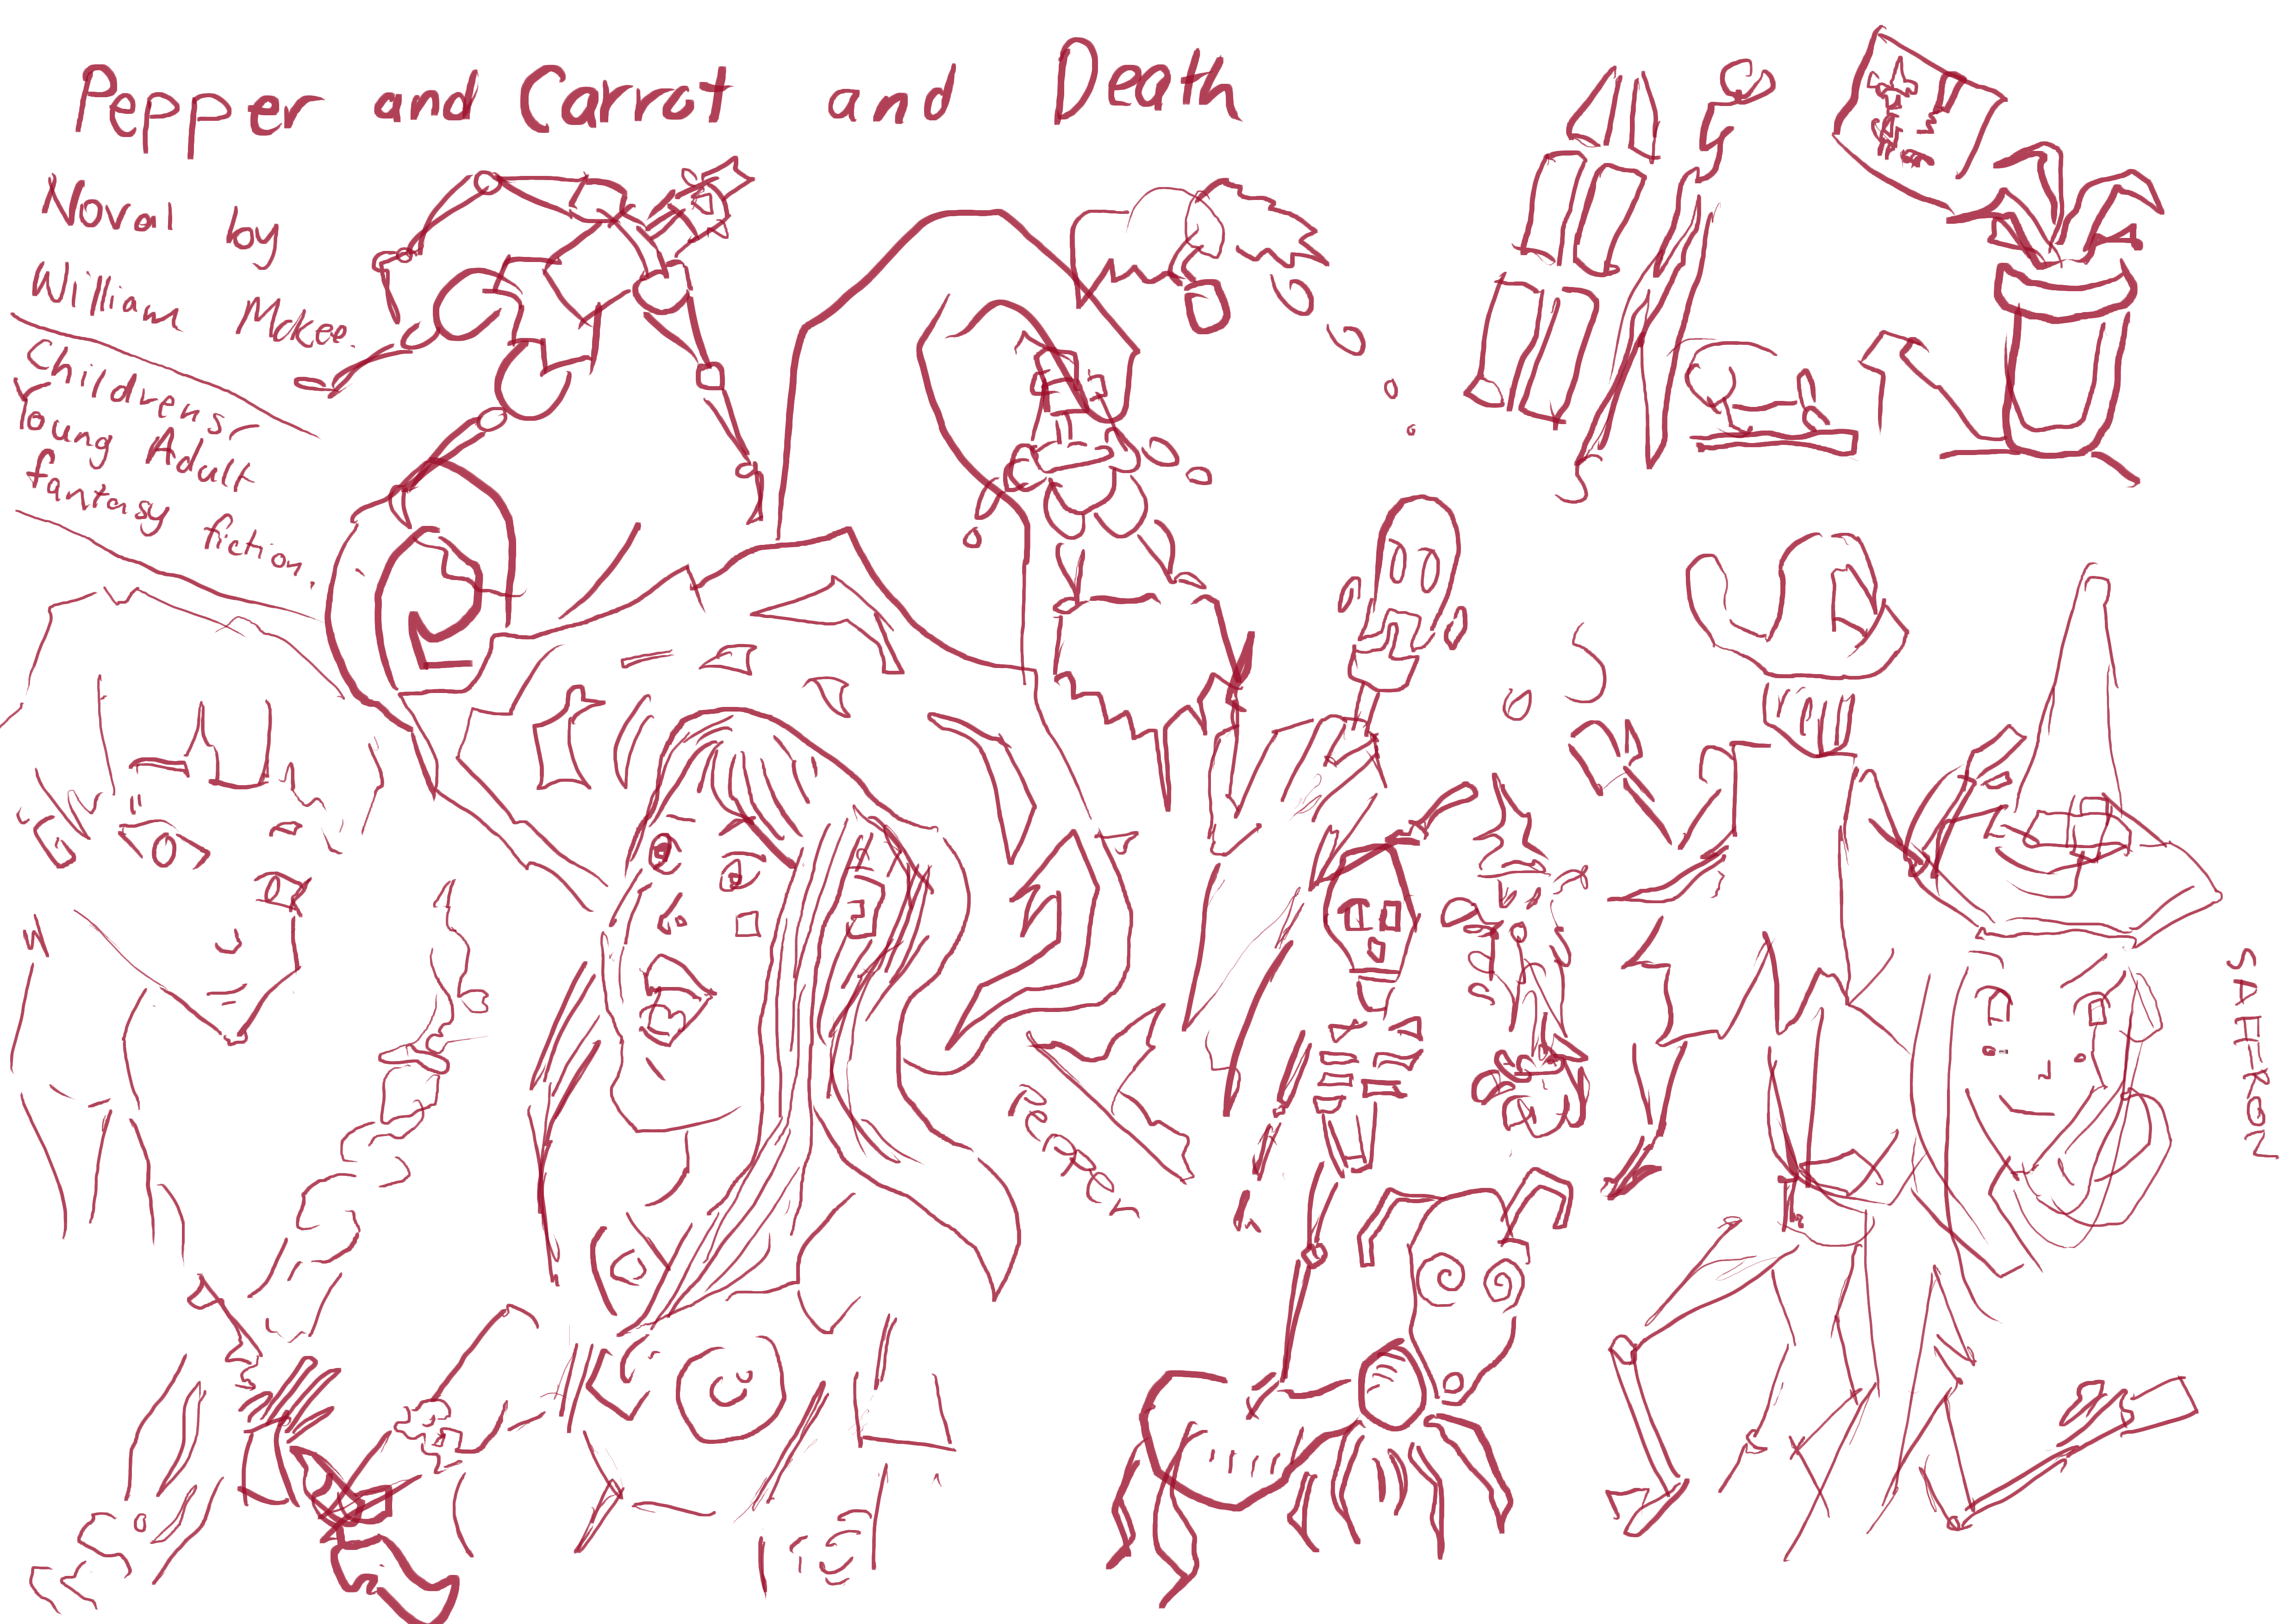 Pepper and Carrot and Death
Noval by
William McKee.
Childrens-
Young Adult
fantasy fiction.
Pepper
SAHRON